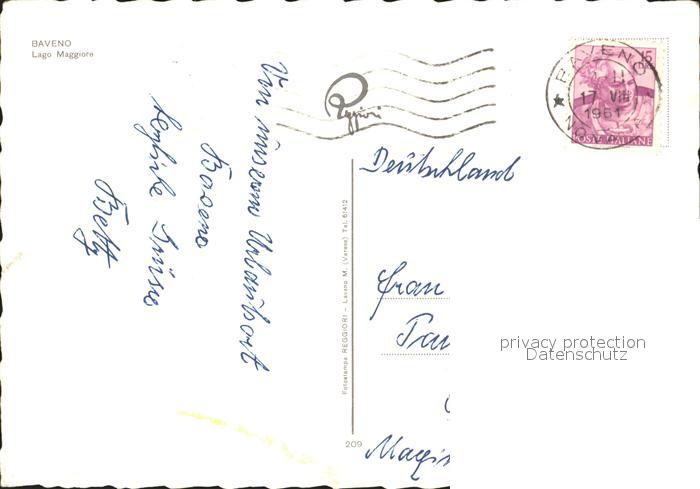 BAVENO
Lago Maggiore
Von unserem Urlaubsort
Baveno
herzliche Grüsse
Betty
Reggiori
BAVENO
17 VIII
1961
15
POSTE ITALIANE
Deutschland
Frau
209
Fotostampa REGGIORI - Laveno M. (Varese) Tel. 61412
privacy protection
Datenschutz